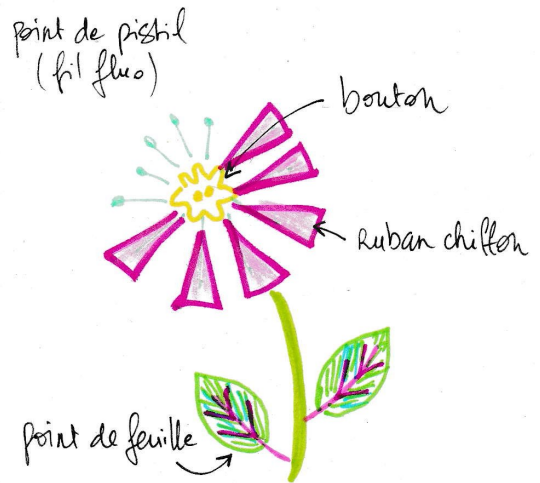 point de pistil
(fil fluo)
bouton
Ruban chiffon
point de feuille